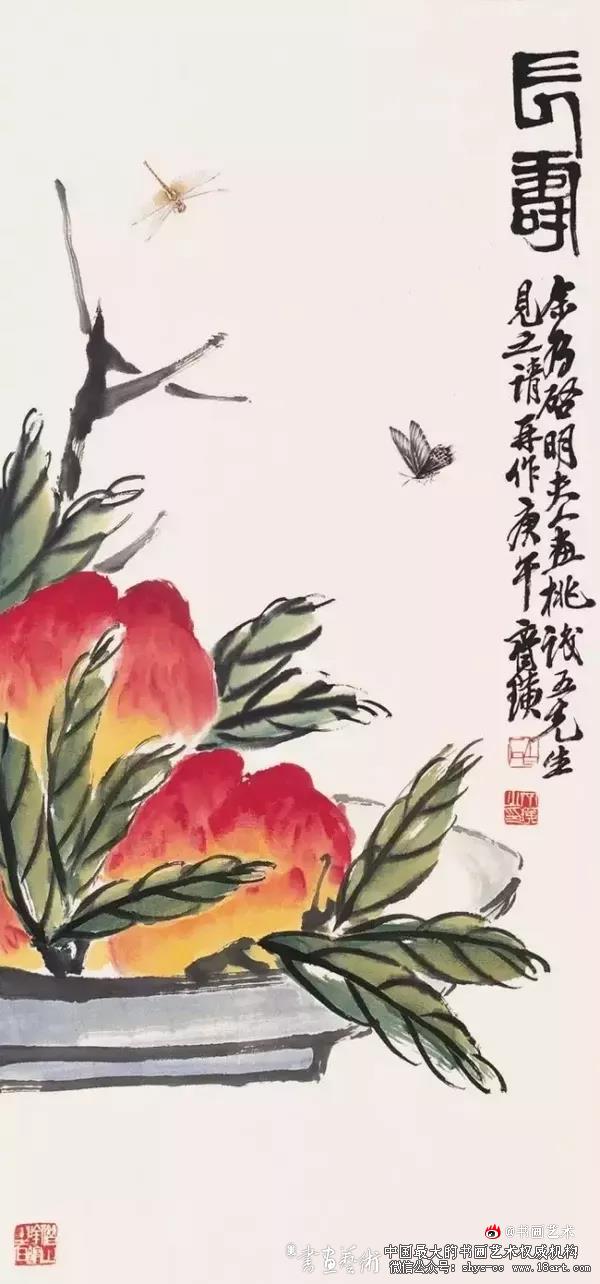 長壽
余为啓明夫人画桃識五先生
見之請再作庚午齊璜
書畫藝術
@书画艺术
中国最大的书画艺术权威机构
微信公众号: shys-cc www.18art.com